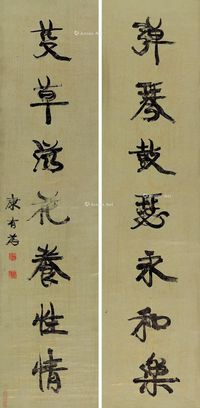 彈琴鼓瑟永和樂
芟草滋花養性情
康有為